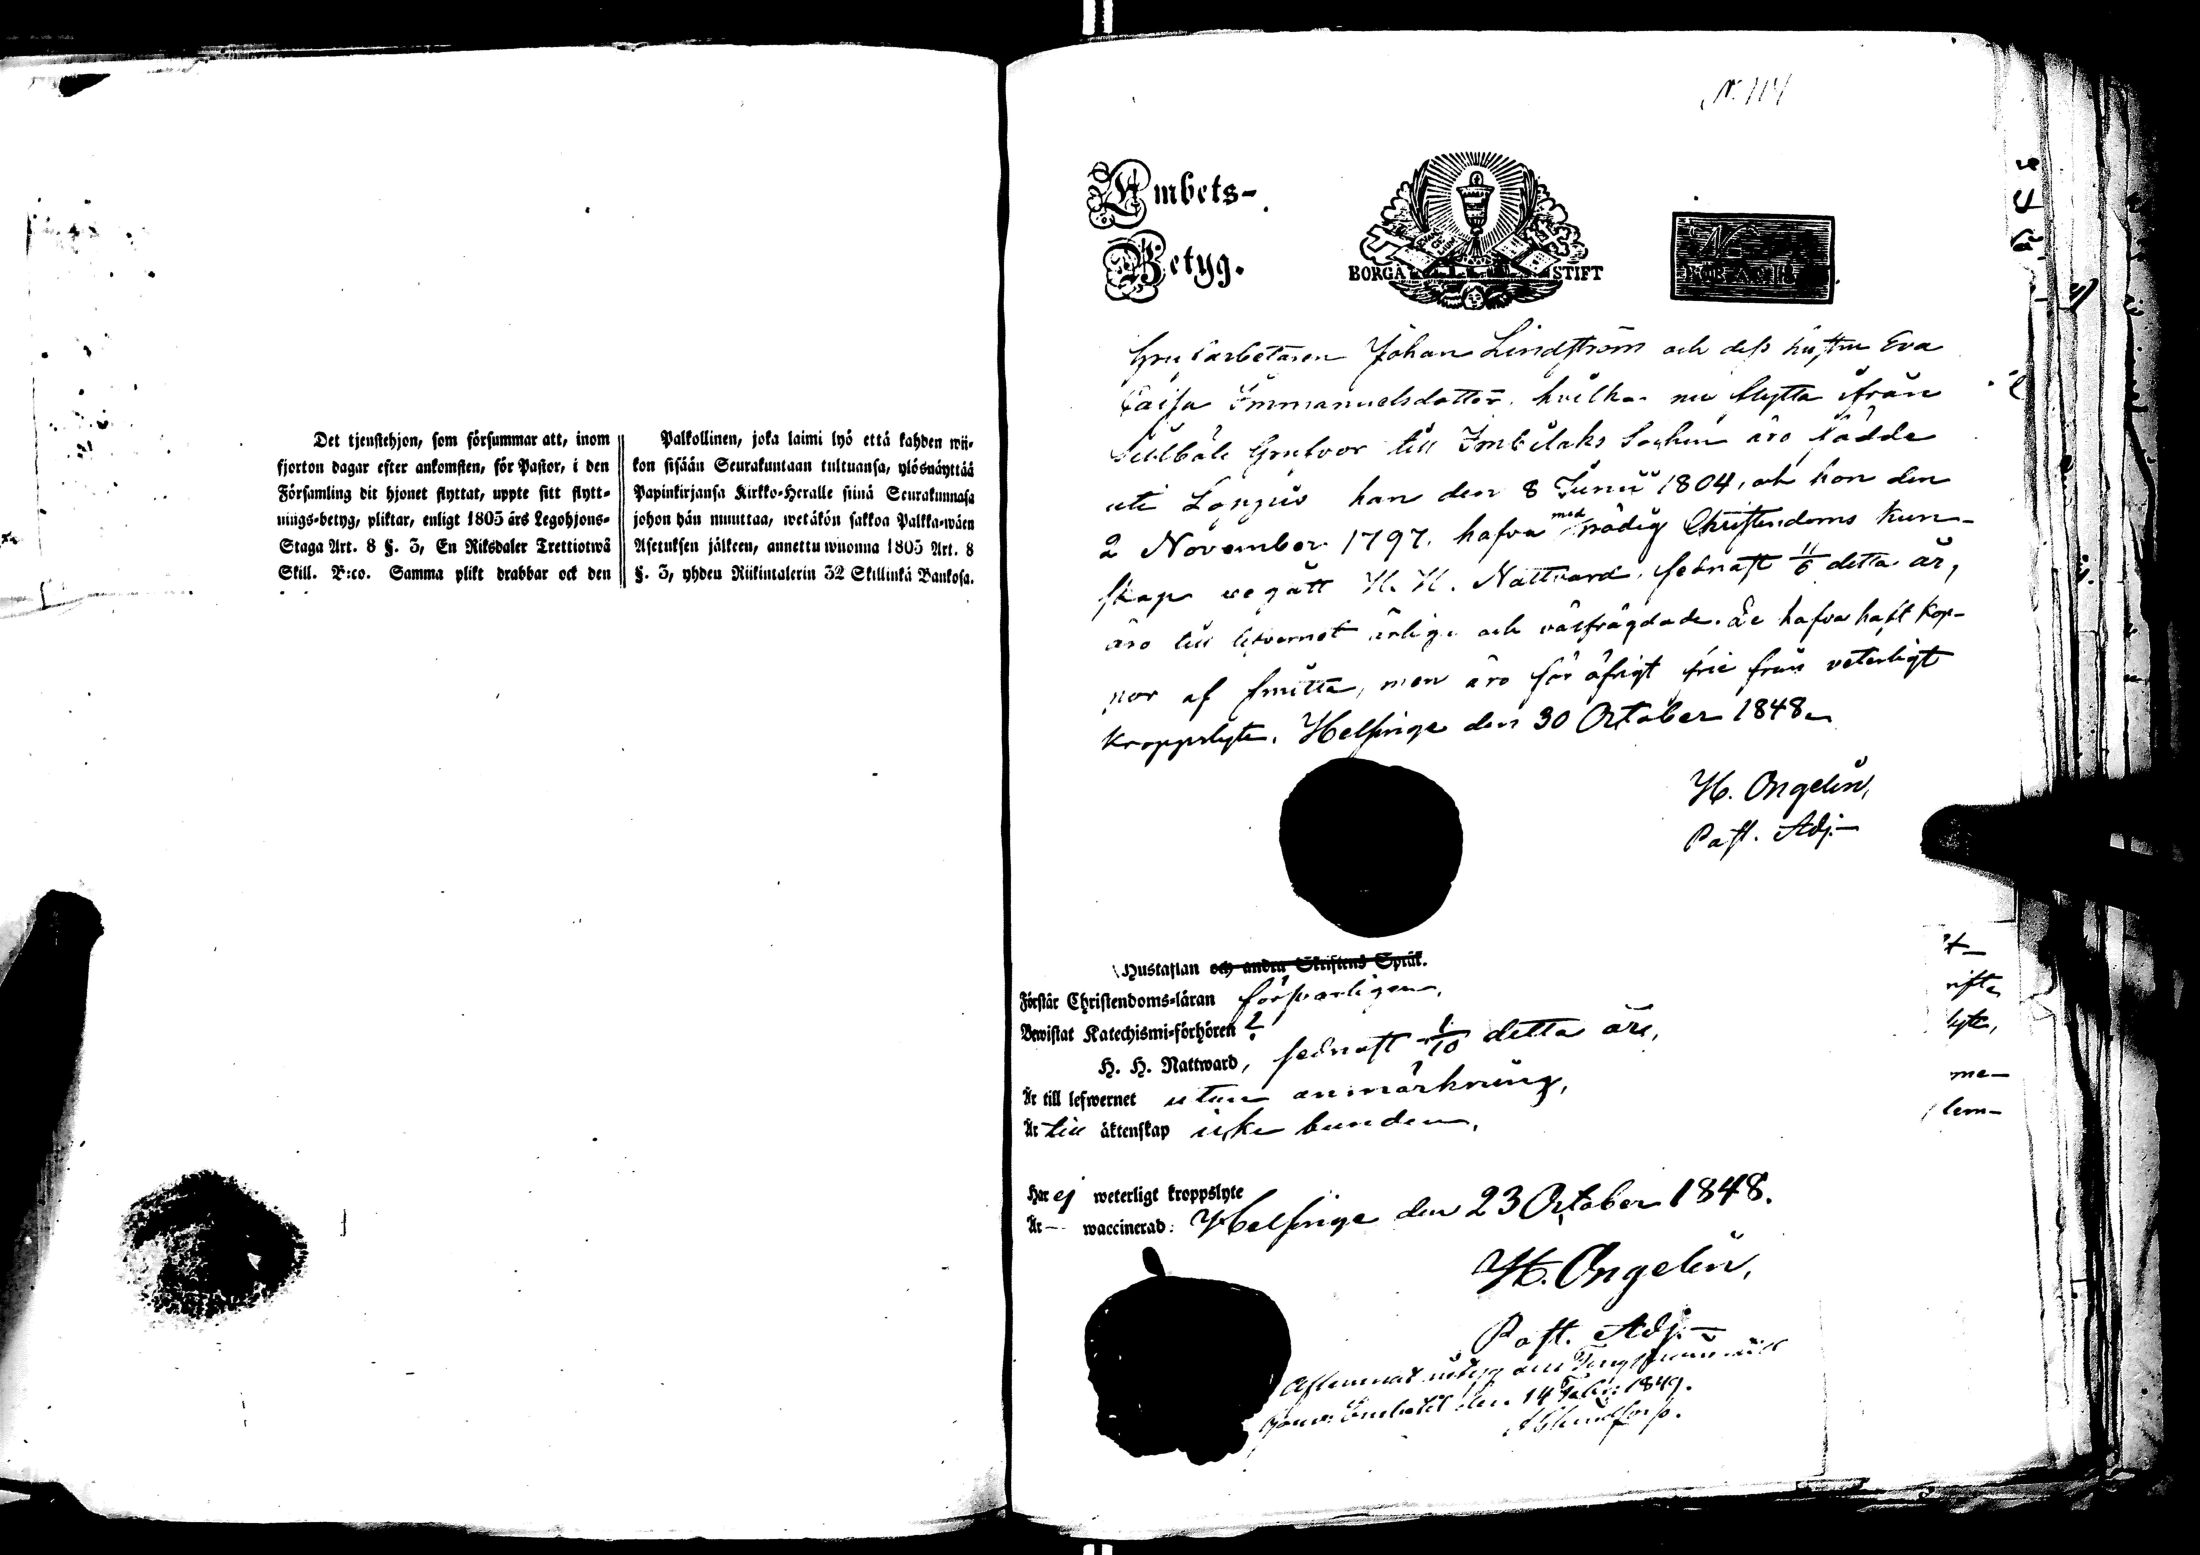 Det tjenstehjon, som försummar att, inom
fjorton dagar efter ankomsten, för Pastor, i den
Församling dit hjonet flyttat, uppte sitt flytt-
nings-betyg, pliktar, enligt 1805 års Legohjons-
Staga Art. 8 §. 3, En Riksdaler Trettiotwå
Skill. B:co. Samma plikt drabbar ock den
Palkollinen, joka laimi lyö että kahden wii-
kon sisään Seurakuntaan tultuansa, ylösnäyttää
Papinkirjansa Kirkko-Heralle siinä Seurakunnasa
johon hän muuttaa, wetäkön sakkoa Palkka-wäen
Asetuksen jälkeen, annettu wuonna 1805 Art. 8
§. 3, yhden Riikintalerin 32 Skillinkä Bankosa.
N:114
Ambets-
Betyg.
BORGÅ STIFT
Grufarbetaren Johan Lindström och dess hustru Eva
Caisa Immanuelsdotter, hvilka nu flytta ifrån
Sillböle Grufvor till Imbilaks Sochn äro födde
uti Lojjo han den 8 Junii 1804, och hon den
2 November 1797, hafva med nödig Christendoms Kun-
skap begått H. H. Nattvard, sednast 11/6 detta år,
äro till lefvernet ärlige och välfrägdade. De hafva haft Kop-
por af smitta, men äro för öfrigt frie från veterligt
kroppslyte. Helsinge den 30 October 1848.
H. Ongelin,
Past. Adj.
Hustaflan och andra Skriftens Språk.
Förstår Christendoms-läran försvarligen,
Bewistat Katechismi-förhören ?
H. H. Nattward, sednast 1/10 detta år,
Är till lefwernet utan anmärkning,
Är till äktenskap icke bunden,
Har ej weterligt kroppslyte
Är — waccinerad: Helsinge den 23 October 1848.
H. Ongelin,
Past. Adj.
den 14 1849.